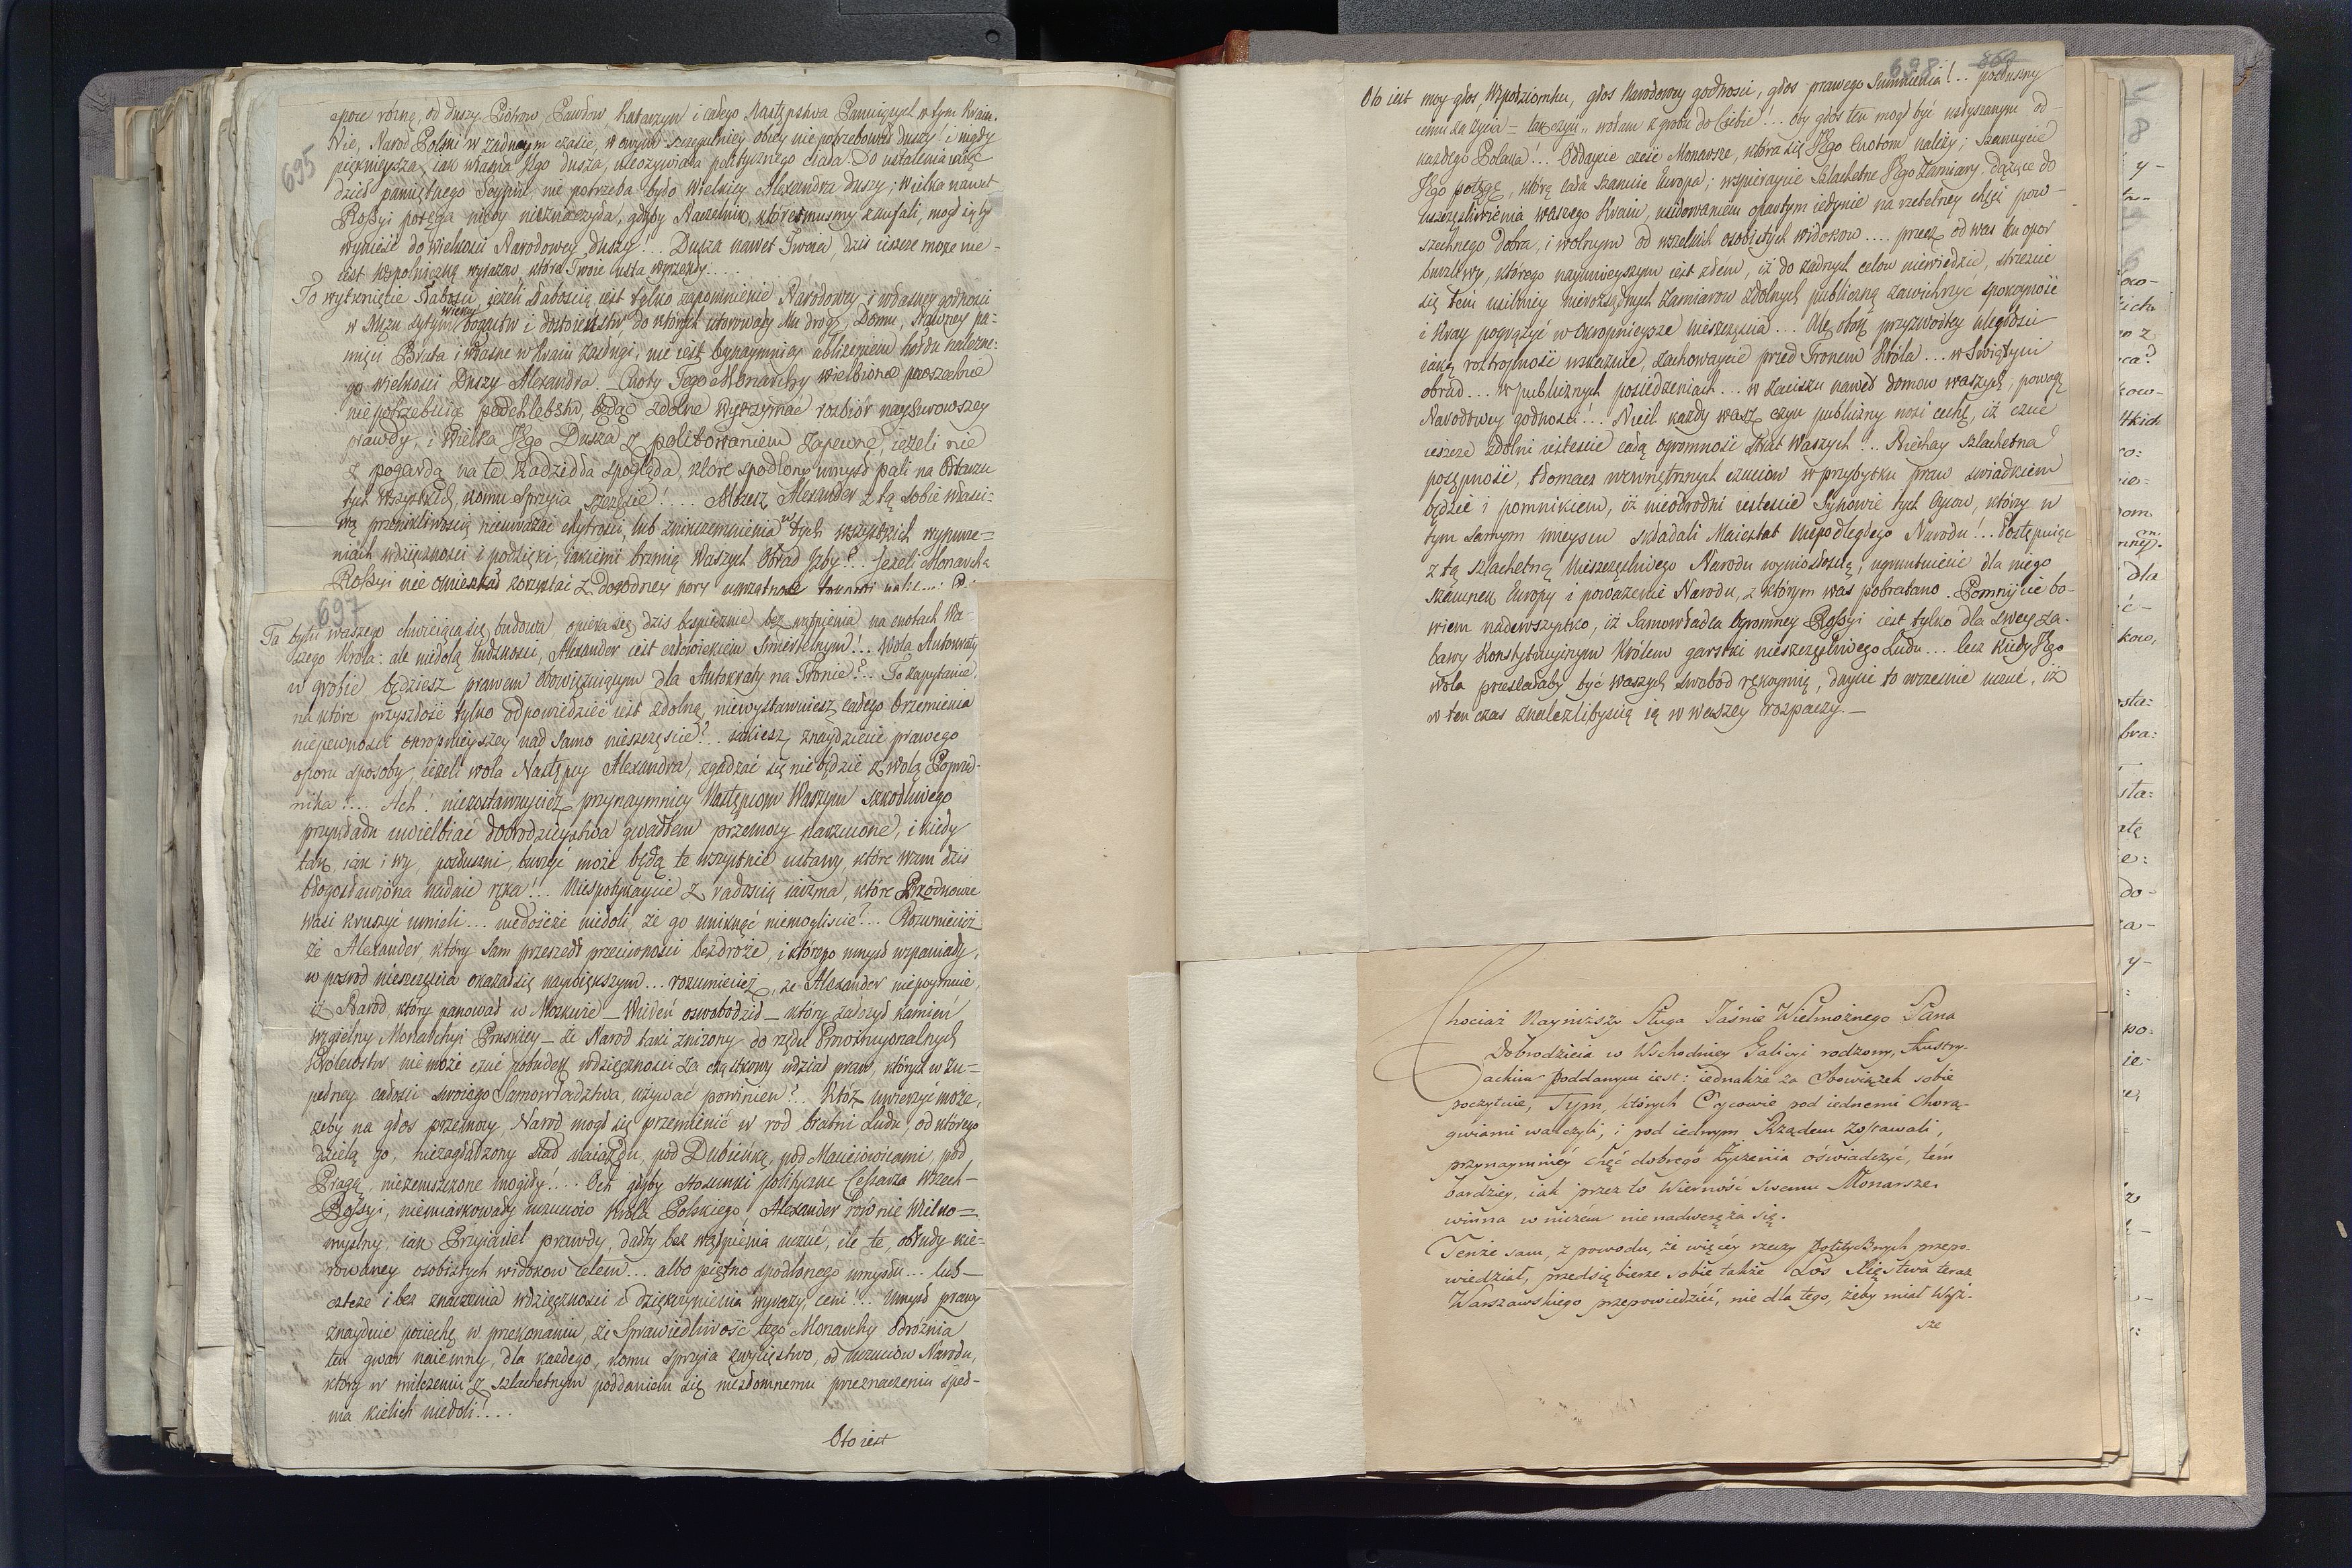 695
epoce rózną, od duszy Piotrow Pawłow Katarzyn i całego Następstwa Panuiących w tym Kraiu.
Nie, Narod Polski w żadnym czasie, w owym szczegulniey obcey nie potrzebował duszy! i nigdy
pięknieysza iak własna Jego dusza, nieożywiała politycznego ciała. Do ustalenia więc
dzieł pamiętnego Seymu nie potrzeba było Wielkiey Alexandra duszy; Wielka nawet
Rossyi potęga nicby nieznaczyła, gdyby Naczelnik, któremuśmy zaufali, mogł się był
wynieść do wielkości Narodowey duszy!... Dusza nawet Twoia, dziś ieszcze może nie-
iest Wspolniczką wyrazow, które Twoie usta wyrzekły.....
To wytknięcie słabości, ieżeli słabością iest tylko zapomnienie Narodowey i własney godności
w Mężu sytym bogactw i dostoieństw do których utorowały Mu drogę, Domu, sławney pa-
mięci Brata i własne w Kraiu zasługi, nie iest bynaymniey ubliżeniem hołdu należne-
go wielkości Duszy Alexandra. Cnoty Tego Monarchy wielbione powszechnie
niepotrzebuią podchlebstw, będąc zdolne wytrzymać rozbiór naysurowszey
prawdy, i Wielka Jego Dusza z politowaniem zapewne, ieżeli nie
z pogardą na te Kadzidła spogląda, które spodlony umysł pali na Ołtarzu
tych wszystkich, komu sprzyia szczęście!.... Możesz Alexander z tą sobie właści-
wą przenikliwością nieuważać chytrości, lub znikczemnienia w tych wszystkich wynurze-
niach wdzięczności i podzięki, iakiemi brzmią Waszych Obrad Izby?.. Jeżeli Monarcha
Rossyi nie omieszkał korzystać z dogodney pory
697
Ta bytu waszego chwieiąca się budowa, opiera się dziś bespiecznie bez wątpienia na cnotach Wa-
szego Króla: ale niedolą ludzkości, Alexander iest człowiekiem śmiertelnym!.. Wola Autokraty
w grobie będzież prawem obowięzuiącym dla Autokraty na Tronie?.. To zapytanie,
na które przyszłość tylko odpowiedzieć iest zdolną, niewystawuiesz całego brzemienia
niepewności okropnieyszey nad samo nieszczęście?.. iakież znaydziecie prawego
oporu sposoby, ieżeli wola Następcy Alexandra, zgadzać się nie będzie z wolą Poprzed-
nika?... Ach! niezostawuycież przynaymniey Następcom Waszym szkodliwego
przykładu uwielbiać dobrodzieystwa gwałtem przemocy narzucone, i kiedy
tak iak i wy, posłuszni, burzyć może będą te wszystkie ustawy, które wam dziś
błogosławiona nadaie ręka!.. Niespotykaycie z radością iarzma, które Przodkowie
wasi kruszyć umieli... niedośćże niedoli, że go uniknąć niemogliście?... Rozumieciesz
że Alexander, który sam przeszedł przeciwności bezdroże, i którego umysł wspaniały,
w pośrod nieszczęścia okazał się naywiększym... rozumiecież, że Alexander niepoymuie,
iż Narod, który panował w Moskwie — Wiedeń oswobodził — który założył kamień
węgielny Monarchyi Pruskiey — że Narod taki zniżony do rzędu Prowincyonalnych
Krolestw, nie może czuć pobudek wdzięczności za cząstkowy udział praw, których w zu-
pełney całości swoiego Samowładztwa, używać powinien?.. Któż uwierzyć może,
żeby na głos przemocy, Narod mogł się przemienić w rod bratni Ludu, od którego
dzielą go, niezagładzony ślad naiazdu, pod Dubienką, pod Macieiowicami, pod
Pragą, niezemszczone mogiły!... Och gdyby stosunki polityczne Cesarza Wszech-
Rossyi, niemiarkowały uczuciow Króla Polskiego, Alexander równie Wielko-
myślny, iak Przyiaciel prawdy, dałby bez wątpienia uczuć, ile te, obłudy kie-
rowaney osobistych widokow celem... albo piętno spodlonego umysłu... lub—
czcze i bez znaczenia wdzięczności i dziękczynienia wyrazy, ceni!.. Umysł prawy
znayduie pociechę w przekonaniu, że Sprawiedliwość tego Monarchy odróżnia
ten gwar naiemny, dla każdego, komu sprzyia zwycięstwo, od uczuciow Narodu,
który w milczeniu z szlachetnym poddaniem się niezłomnemu przeznaczeniu speł-
nia kielich niedoli!...
Oto iest
698 869
Oto iest moy głos, Wspołziomku, głos Narodowey godności, głos prawego Sumnienia!.. posłuszny
iemu za życia — tak czyń,, wołam z grobu do Ciebie!... oby głos ten mogł być usłyszanym od
każdego Polaka!.. Oddaycie cześć Monarsze, która się Jego Cnotom należy; Szanuycie
Jego potęgę, którą cała szanuie Europa; wspieraycie Szlachetne Jego Zamiary, dążące do
uszczęśliwienia waszego Kraiu, usiłowaniem opartym iedynie na rzetelney chęci pow-
szechnego dobra, i wolnym od wszelkich osobistych widokow.... precz od was ten opor
burzliwy, którego naymnieyszym iest złem, iż do żadnych celow niewiedzie, strzeżcie
się tem usilniey nierozsądnych zamiarow zdolnych publiczną zawichrzyć spokoyność
i Kray pogrążyć w okropnieysze nieszczęścia... Ale obok przyzwoitey uległości
iaką roztropność wskazuie, zachowaycie przed Tronem Króla... w Świątyni
obrad... w publicznych posiedzeniach... w zaciszu nawet domow waszych, powagę
Narodowey godności!.. Niech każdy wasz czyn publiczny nosi cechę, iż czuć
ieszcze zdolni iesteście całą ogromność strat Waszych!.. Niechay szlachetna
posępność, tłomacz wewnętrznych czuciow w przybytku praw świadkiem
będzie i pomnikiem, iż nieodrodni iesteście Synowie tych Oycow, którzy w
tym samym mieyscu składali Maiestat Niepodległego Narodu!.. Postępuiąc
z tą szlachetną Nieszczęśliwego Narodu wyniosłością, ugruntuiecie dla niego
szacunek Europy i poważenie Narodu, z którym was pobratano. Pomniycie bo-
wiem nadewszystko, iż Samowładca ogromney Rossyi iest tylko dla swey za-
bawy Konstytucyinym Królem garstki nieszczęśliwego Ludu... lecz kiedy Jego
wola przestałaby być waszych swobod rękoymią, daycie to wcześnie uczuć, iż
w ten czas znaleźlibyście ią w waszey rozpaczy.—
Chociaż Nayniższy Sługa Jaśnie Wielmożnego Pana
Dobrodzieia w Wschodniey Galicyi rodzony, Austry-
ackim Poddanym iest: iednakże za Obowiązek sobie
poczytuie, Tym, których Oycowie pod iednemi Chorą-
gwiami walczyli, i pod iednym Rządem zostawali,
przynaymniey chęć dobrego życzenia oświadczyć, tém
bardziey, iak przez to Wierność swemu Monarsze
winna w niczém nienadweręża się.
Tenże sam, z powodu, że więcéy rzeczy Politycznych przepo-
wiedział, przedsiębierze sobie także Los Xięstwa teraz
Warszawskiego przepowiedzieć, nie dla tego, żeby miał Wyż-
sze